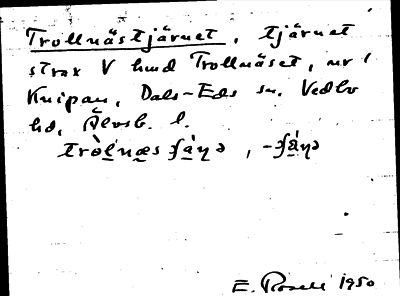 Trollnästjärnet, tjärnet
strax V hmd Trollnäset, nv
Knipan, Dals-Eds sn. Vedbo
hd, Älvsb. l.
E. Rosell 1950